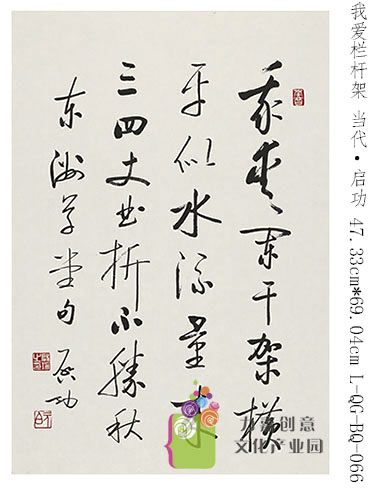 我爱阑干架横
平似水流量来
三四丈曲折不勝秋
东洲草堂句 启功
我爱栏杆架 当代·启功 47.33cm*69.04cm L-QG-BQ-066
创意
文化产业园